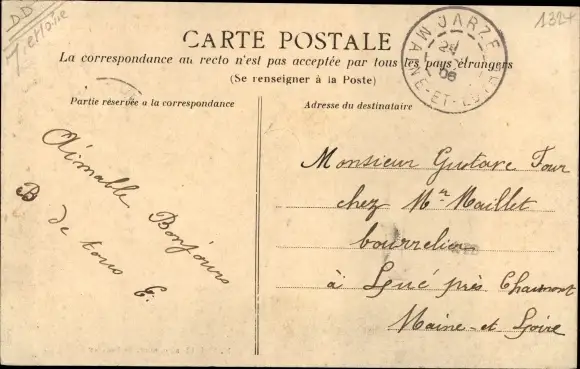 D.D
1324
CARTE POSTALE
La correspondance au recto n'est pas acceptée par tous les pays étrangers
(Se renseigner à la Poste)
JARZÉ
24
06
MAINE-ET-LOIRE
Partie réservée a la correspondance
Adresse du destinataire
Aimable Bonjours
B de tous E.
Monsieur Gustave Four
chez Mr Maillet
bourrelier
à Lué près Chaumont
Maine et Loire